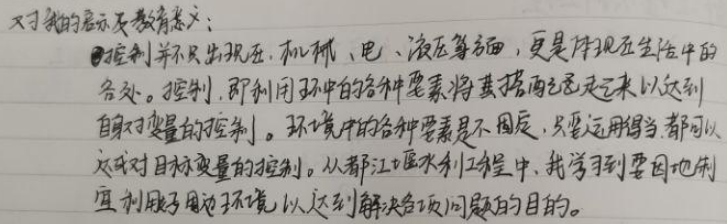 对我的启示及教育意义：
控制并不只出现在,机械、电、液压等方面,更是体现在生活中的
各处。控制,即利用环中的各种要素将其搭配起来以达到
自身对变量的控制。环境中的各种要素是不固定,只要运用得当,都可以
达成对目标变量的控制。从都江堰水利工程中,我学习到要因地制
宜利用好周边环境以达到解决各项问题的目的。